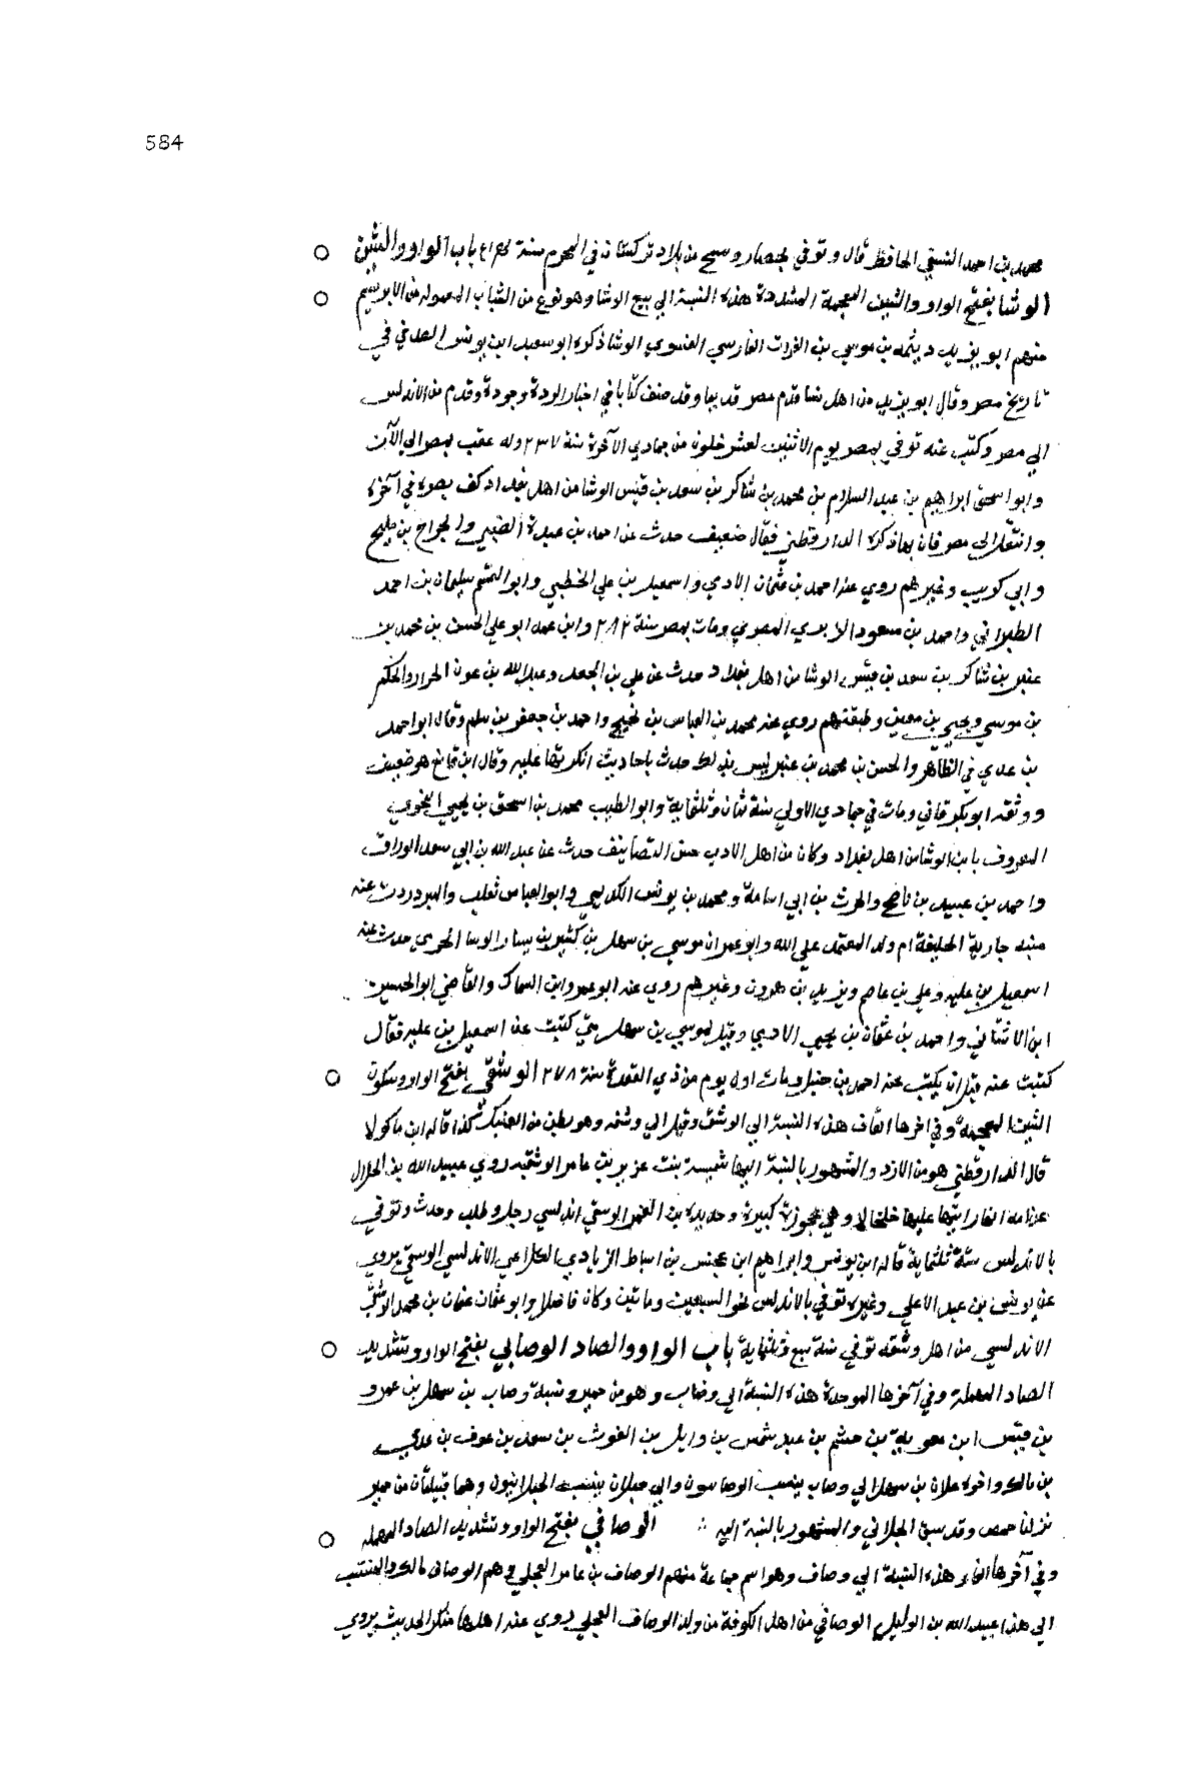 584
محمد بن احمد النسفي الحافظ قال وتوفي بحصار وسيح من بلاد تركستان في المحرم سنة باب الواو والشين
الوشا بفتح الواو والشين المعجمة المشددة هذه النسبة الي بيع الوشا وهو نوع من الثياب المعموله من الابريسم
منهم ابو يزيد وثيمه بن موسي بن الفرات الفارسي الفسوي الوشا ذكره ابو سعيد ابن يونس الصدفي في
تاريخ مصر وقال ابو يزيد من اهل فسا قدم مصر قديما وقد صنف كتابا في اخبار الردة وجوده وقدم من الاندلس
الي مصر وكتب عنه توفي بمصر يوم الاثنين لعشر خلون من جمادي الآخرة سنة ٢٣٧ وله عقب بمصر الي الآن
وابو اسحق ابراهيم بن عبد السلام بن محمد بن شاكر بن سعد بن قيس الوشا من اهل بغداد كف بصره في آخره
وانتقل الي مصر فمات بها ذكره الدارقطني فقال ضعيف حدث عن احمد بن عبدة الضبي والجراح بن مليح
وابي كريب وغيرهم روي عنه احمد بن عثمان الادمي واسمعيل بن علي الخطبي وابو القسم سليمان بن احمد
الطبراني واحمد بن مسعود الزبيري المصري ومات بمصر سنة ٢٨٢ وابن عمه ابو علي الحسن بن محمد بن
عنبر بن شاكر بن سعد بن قيس الوشا من اهل بغداد حدث عن علي بن الجعد وعبد الله بن عون الخراز والحكم
بن موسي ويحيي بن معين وطبقتهم روي عنه محمد بن العباس بن نجيح واحمد بن جعفر بن سلم وقال ابو احمد
بن عدي في الظاهر والحسن بن محمد بن عنبر ليس بذلك حدث باحاديث انكرتها عليه وقال ابن قانع هو ضعيف
ووثقه ابو بكر قاني ومات في جمادي الاولي سنة ثمان وثلثماية وابو الطيب محمد بن اسحق بن يحيي النحوي
المعروف بابن الوشا من اهل بغداد وكان من اهل الادب حسن التصانيف حدث عن عبد الله بن ابي سعد الوراق
واحمد بن عبيد بن ناصح والحرث بن ابي اسامة ومحمد بن يونس الكديمي وابو العباس ثعلب والمبرد روت عنه
منيه جارية الخليفة ام ولد المعتمد علي الله وابو عمران موسي بن سهل بن كثير بن يسار الوشا الحرفي حدث عنه
اسمعيل بن عليه وعلي بن عاصم ويزيد بن هرون وغيرهم روي عنه ابو عمرو ابن السماك والقاضي ابو الحسين
ابن الاشناني واحمد بن عثمان بن يحيي الادمي وقيل لموسي بن سهل متي كتبت عن اسمعيل بن عليه فقال
كتبت عنه قبل ان يكتب عنه احمد بن حنبل ومات اول يوم من ذي القعدة سنة ٢٧٨ الوشقي بفتح الواو وسكون
الشين المعجمة وفي اخرها القاف هذه النسبة الي الوشق وقيل الي وشقه وهو بطن من العتيك كذا قاله ابن ماكولا
قال الدارقطني هو من الازد والمشهور بالنسبة اليها شميسة بنت عزيز بن عامر الوشقيه روي عبيد الله بن الحلال
عن امه انها رايتها عليها خلخالا وهي عجوزة كبيرة وحديده بن الغمر الوشقي اندلسي رحل وطلب وحدث وتوفي
بالاندلس سنة ثلثماية قاله ابن يونس وابراهيم ابن عجنس بن اسباط الزيادي الكلاعي الاندلسي الوشقي يروي
عن يونس بن عبد الاعلي وغيره توفي بالاندلس نحو السبعين ومائتين وكان فاضلا وابو عثمان عثمان بن محمد الوشقي
الاندلسي من اهل وشقه توفي سنة سبع وثلثماية باب الواو والصاد الوصابي بفتح الواو وتشديد
الصاد المهملة وفي آخرها الموحدة هذه النسبة الي وصاب وهو من حمير ونسبة وصاب بن سهل بن عمرو
بن قيس ابن معويه بن جشم بن عبد شمس بن وايل بن الغوث بن سعد بن عوف بن عدي
بن مالك واخوه جبلان بن سهل الي وصاب ينسب الوصابيون والي جبلان ينسب الجبلانيون وهما قبيلتان من حمير
نزلتا حمص وقد سبق الجبلاني والمشهور بالنسبة اليه الوصافي بفتح الواو وتشديد الصاد المهمله
وفي آخرها الفاء هذه النسبة الي وصاف وهو اسم جماعة منهم الوصاف بن عامر العجلي وهم الوصاف مالك والمنتسب
الي هذا عبيد الله بن الوليد الوصافي من اهل الكوفة من ولد الوصاف العجلي روي عنه اهلها منكر الحديث يروي